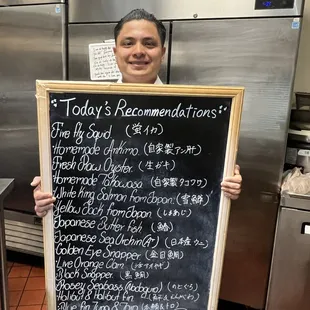 Today's Recommendations
Fire fly Squid (蛍イカ)
Homemade Ankimo (自家製アン肝)
Fresh Raw Oyster (生ガキ)
Homemade Takowasa (自家製タコワサ)
White King Salmon from Japan
Yellow Jack from Japan (しまあじ)
Japanese Butter fish
Japanese Sea Urchin (日本産ウニ)
Golden Eye Snapper (金目鯛)
Live Orange Clam
Black Snapper (黒鯛)
Rosey Seabass (Nodoguro)
Halibut & Halibut fin
Blue fin Tuna & Toro